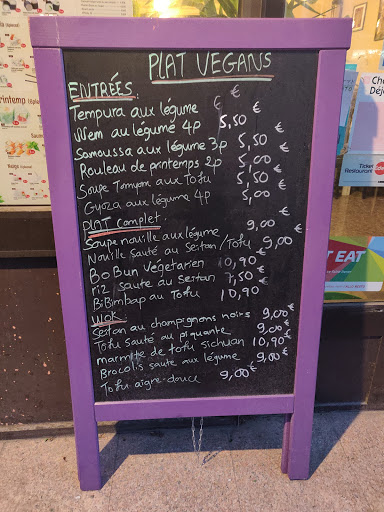 PLAT VEGANS
€
ENTRÉES
Tempura aux légume €
Nem au légumé 4p 5,50 €
Samoussa aux légume 3p 5,50 €
Rouleau de printemps 2p 5,00 €
Soupe Tomyam aux Tofu 5,50 €
Gyoza aux légume 4P 5,00
PLAT complet.
Soupe nouille aux légume 9,00 €
Nouille Sauté au Seitan/Tofu 9,00 €
Bo Bun Végétarien 10,90
riz saute au Seitan 7,50 €
BiBimbap au Tofu 10,90 €
WOK.
Seitan au champignons noirs 9,00 €
Tofu sauté au piquante 9,00 €
marmite de tofu Sichuan 10,90 €
Brocolis saute aux légume 9,00 €
Tofu aigre-douce 9,00 €
printemp
Ticket
Restaurant
EAT